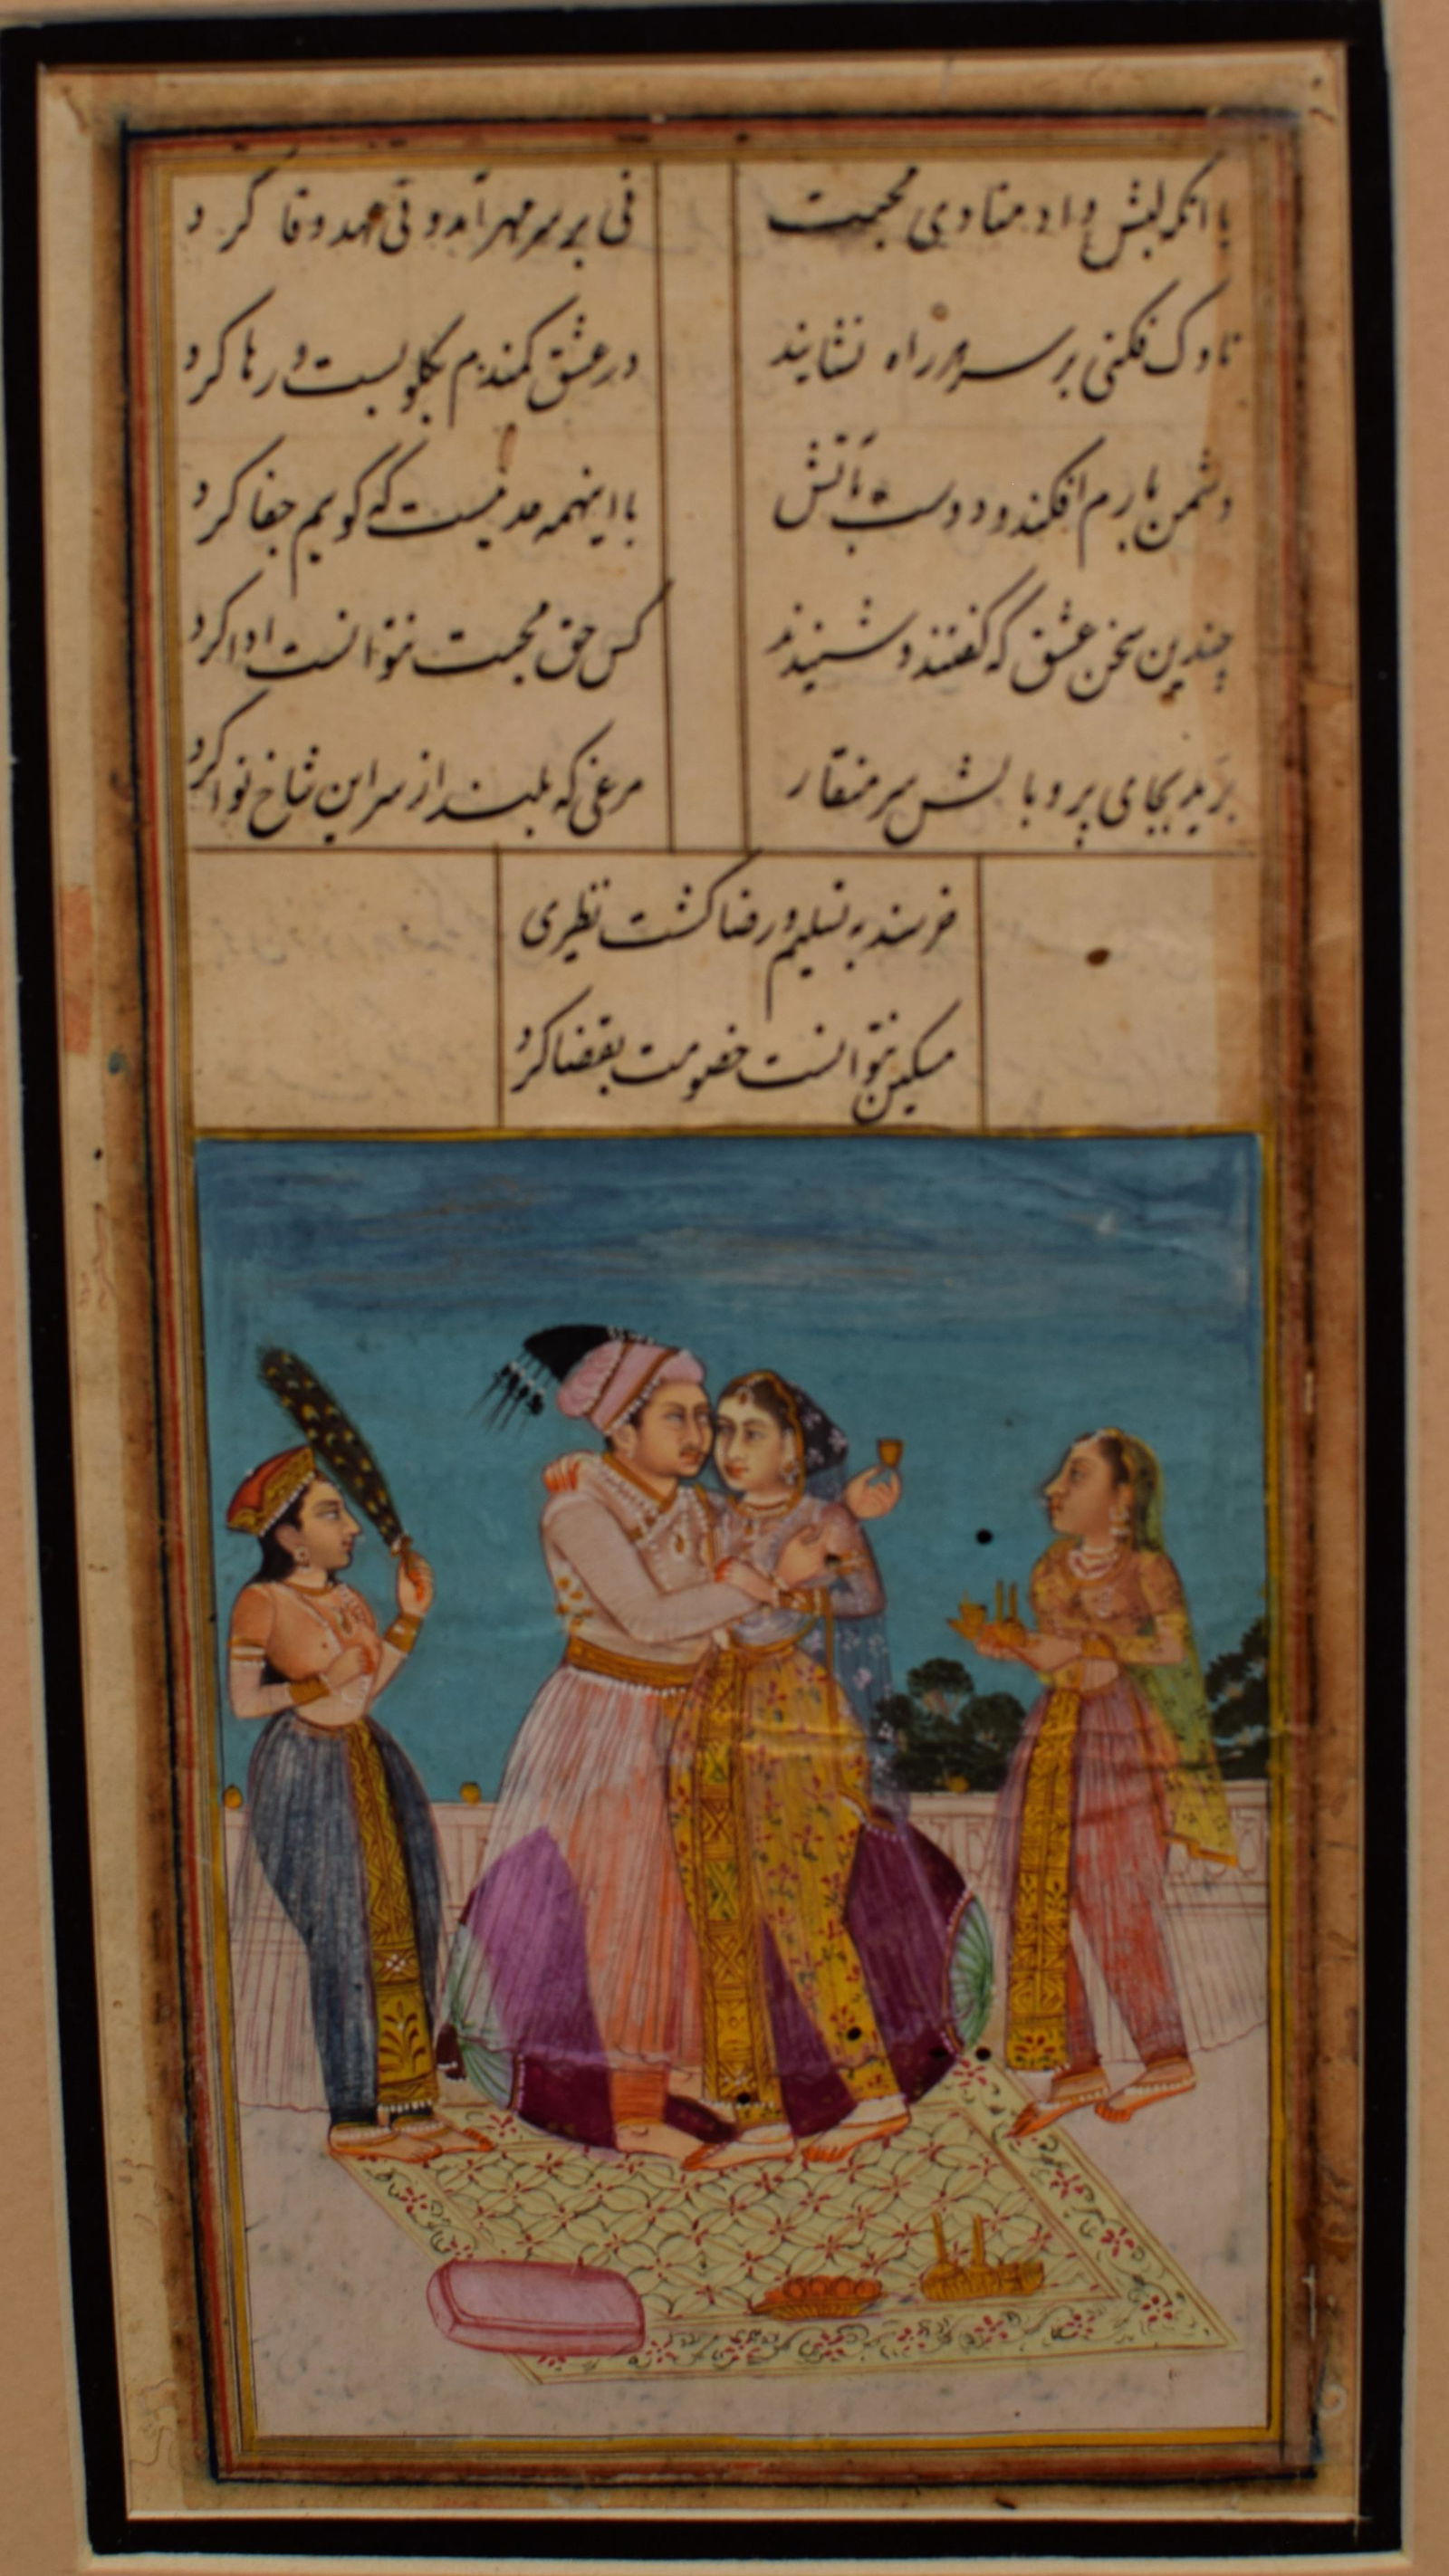 با آنکه لبش داد منادی محبت
نی بر سر مهر آمد و نی عهد وفا کرد
ناوک فکنی بر سر هر راه نشانید
در عشق کمندم بگلو بست و رها کرد
دشمن بارم افکند و دوست بآتش
با اینهمه حد نیست که گویم جفا کرد
چندین سخن عشق که گفتند و شنیدند
کس حق محبت نتوانست ادا کرد
برید بجای پر و بالش سر منقار
مرغی که بلند از سر این شاخ نوا کرد
خرسند به تسلیم و رضا گشت نظیری
مسکین نتوانست خصومت بقضا کرد